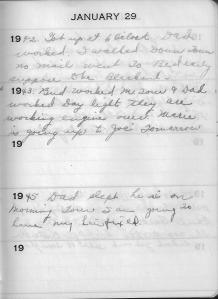 JANUARY 29
1942. Got up at 6 o'clock Dad
worked. I walked Down Town
no mail went To Bed early
suppose The
1943. Bud worked me Tour & Dad
worked Day light they are
working engine over. Marie
is going up to Joe's Tomorrow
1945 Dad slept he is on
Morning Tour I am going to
have my hair fixed.
19